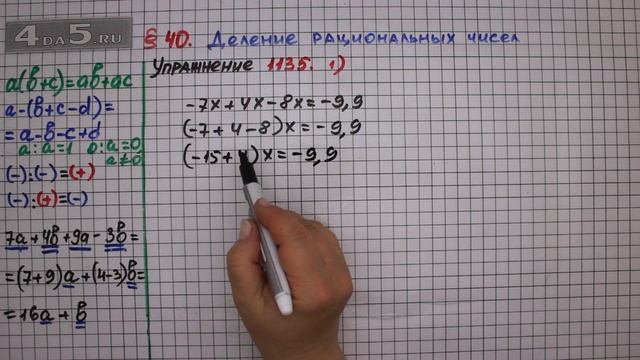 4DA5.RU
§ 40. Деление рациональных чисел
Упражнение 1135. 1)
a(b+c)=ab+ac
a-(b+c-d)=
=a-b-c+d
a:a=1 0:a=0
a≠0
(-):(-)=(+)
(-):(+)=(-)
7a+4b+9a-3b=
=(7+9)a+(4-3)b=
=16a+b
-7x+4x-8x=-9,9
(-7+4-8)x=-9,9
(-15+4)x=-9,9